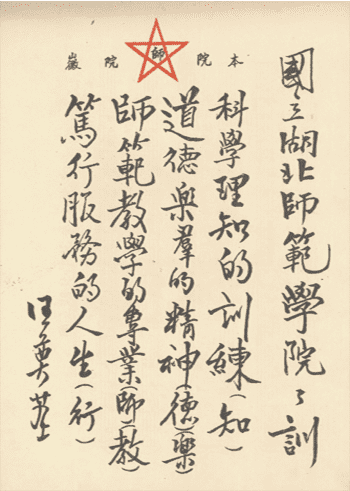 本院院徽
師
國立湖北師範學院之訓
科學理知的訓練(知)
道德樂羣的精神(德)(樂)
師範教學的專業(師)(教)
篤行服務的人生(行)
汪奠基